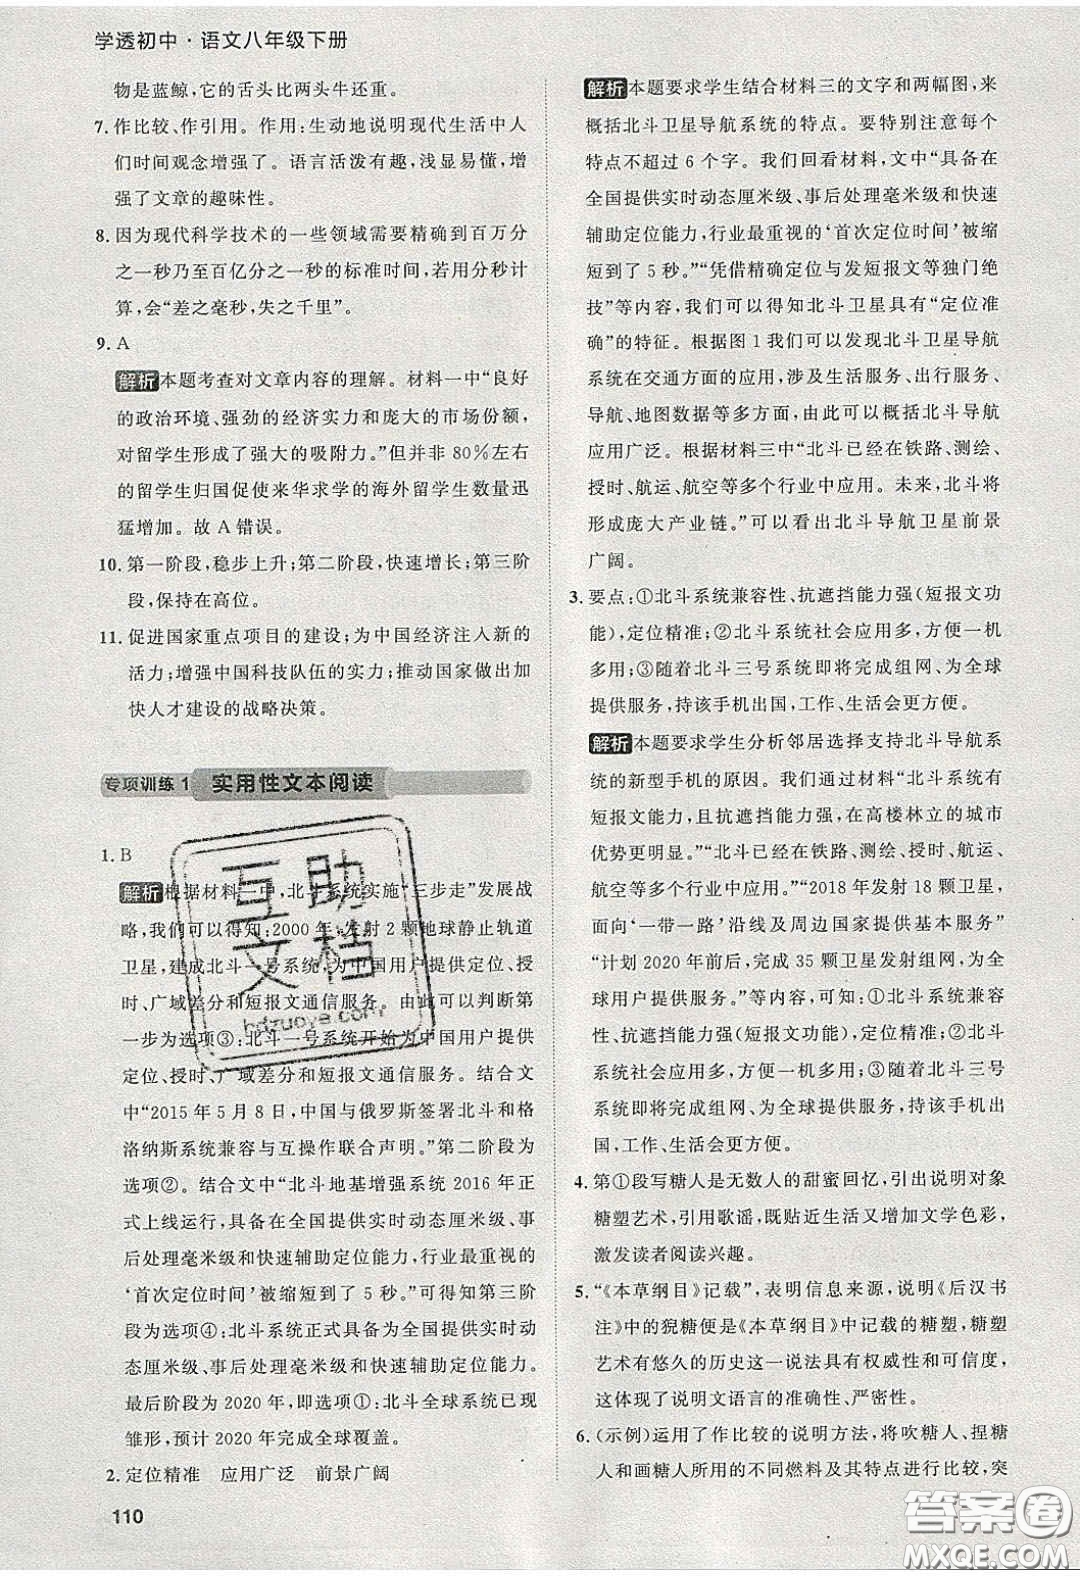 学透初中·语文八年级下册
物是蓝鲸,它的舌头比两头牛还重。
7. 作比较、作引用。作用:生动地说明现代生活中人
们时间观念增强了。语言活泼有趣,浅显易懂,增
强了文章的趣味性。
8. 因为现代科学技术的一些领域需要精确到百万分
之一秒乃至百亿分之一秒的标准时间,若用分秒计
算,会“差之毫秒,失之千里”。
9. A
解析 本题考查对文章内容的理解。材料一中“良好
的政治环境、强劲的经济实力和庞大的市场份额,
对留学生形成了强大的吸附力。”但并非 80%左右
的留学生归国促使来华求学的海外留学生数量迅
猛增加。故 A 错误。
10. 第一阶段,稳步上升;第二阶段,快速增长;第三阶
段,保持在高位。
11. 促进国家重点项目的建设;为中国经济注入新的
活力;增强中国科技队伍的实力;推动国家做出加
快人才建设的战略决策。
专项训练 1 实用性文本阅读
1. B
解析 根据材料一中,北斗系统实施“三步走”发展战
略,我们可以得知:2000 年,发射 2 颗地球静止轨道
卫星,建成北斗一号系统,为中国用户提供定位、授
时、广域差分和短报文通信服务。由此可以判断第
一步为选项③:北斗一号系统开始为中国用户提供
定位、授时、广域差分和短报文通信服务。结合文
中“2015 年 5 月 8 日,中国与俄罗斯签署北斗和格
洛纳斯系统兼容与互操作联合声明。”第二阶段为
选项②。结合文中“北斗地基增强系统 2016 年正
式上线运行,具备在全国提供实时动态厘米级、事
后处理毫米级和快速辅助定位能力,行业最重视的
‘首次定位时间’被缩短到了 5 秒。”可得知第三阶
段为选项④:北斗系统正式具备为全国提供实时动
态厘米级、事后处理毫米级和快速辅助定位能力。
最后阶段为 2020 年,即选项①:北斗全球系统已现
雏形,预计 2020 年完成全球覆盖。
2. 定位精准 应用广泛 前景广阔
110
解析 本题要求学生结合材料三的文字和两幅图,来
概括北斗卫星导航系统的特点。要特别注意每个
特点不超过 6 个字。我们回看材料,文中“具备在
全国提供实时动态厘米级、事后处理毫米级和快速
辅助定位能力,行业最重视的‘首次定位时间’被缩
短到了 5 秒。”“凭借精确定位与发短报文等独门绝
技”等内容,我们可以得知北斗卫星具有“定位准
确”的特征。根据图 1 我们可以发现北斗卫星导航
系统在交通方面的应用,涉及生活服务、出行服务、
导航、地图数据等多方面,由此可以概括北斗导航
应用广泛。根据材料三中“北斗已经在铁路、测绘、
授时、航运、航空等多个行业中应用。未来,北斗将
形成庞大产业链。”可以看出北斗导航卫星前景
广阔。
3. 要点:①北斗系统兼容性、抗遮挡能力强(短报文功
能),定位精准;②北斗系统社会应用多,方便一机
多用;③随着北斗三号系统即将完成组网、为全球
提供服务,持该手机出国,工作、生活会更方便。
解析 本题要求学生分析邻居选择支持北斗导航系
统的新型手机的原因。我们通过材料“北斗系统有
短报文功能,抗遮挡能力强,在高楼林立的城市
优势更明显。”“北斗已经在铁路、测绘、授时、航运、
航空等多个行业中应用。”“2018 年发射 18 颗卫星,
面向‘一带一路’沿线及周边国家提供基本服务”
“计划 2020 年前后,完成 35 颗卫星发射组网,为全
球用户提供服务。”等内容,可知:①北斗系统兼容
性、抗遮挡能力强(短报文功能),定位精准;②北斗
系统社会应用多,方便一机多用;③随着北斗三号
系统即将完成组网、为全球提供服务,持该手机出
国,工作、生活会更方便。
4. 第①段写糖人是无数人的甜蜜回忆,引出说明对象
糖塑艺术,引用歌谣,既贴近生活又增加文学色彩,
激发读者阅读兴趣。
5. “《本草纲目》记载”,表明信息来源,说明《后汉书
注》中的猊糖便是《本草纲目》中记载的糖塑,糖塑
艺术有悠久的历史这一说法具有权威性和可信度,
这体现了说明文语言的准确性、严密性。
6. (示例)运用了作比较的说明方法,将吹糖人、捏糖
人和画糖人所用的不同燃料及其特点进行比较,突
互助
文档
hdzuoye.com
答案圈
MXQE.COM